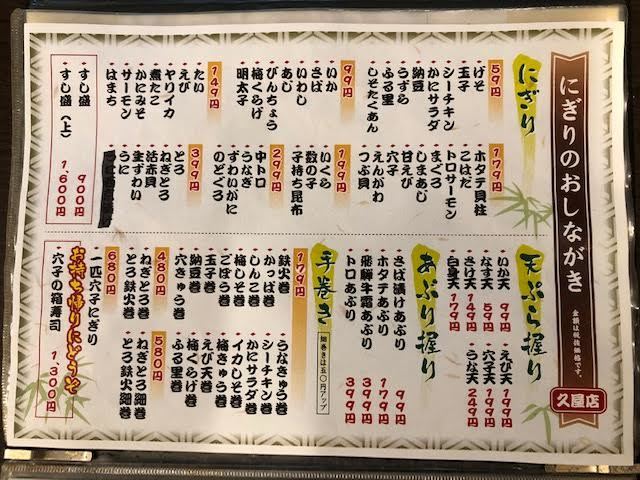 にぎりのおしながき
金額は税抜価格です。
久屋店
にぎり
59円
げそ
玉子
シーチキン
かにサラダ
納豆
うずら
ふる里
しそたくあん
99円
いか
さば
いわし
あじ
びんちょう
梅くらげ
明太子
149円
たい
えび
ヤリイカ
煮たこ
かにみそ
サーモン
はまち
179円
ホタテ貝柱
こはだ
トロサーモン
まぐろ
しまあじ
甘えび
穴子
えんがわ
つぶ貝
199円
いくら
数の子
子持ち昆布
299円
中トロ
うなぎ
ずわいがに
のどぐろ
399円
とろ
ねぎとろ
活赤貝
生ずわい
うに
すし盛 900円
すし盛(上) 1,600円
天ぷら握り
いか天 99円
なす天 59円
さけ天 149円
白身天 179円
えび天 199円
穴子天 199円
うな天 249円
あぶり握り
さば漬けあぶり 99円
ホタテあぶり 179円
飛騨牛霜あぶり 399円
トロあぶり 399円
手巻き
細巻きは五〇円アップ
179円
鉄火巻
かっぱ巻
しんこ巻
梅しそ巻
ごぼう巻
玉子巻
納豆巻
穴きゅう巻
うなきゅう巻
シーチキン巻
かにサラダ巻
イカしそ巻
梅きゅう巻
えび天巻
梅くらげ巻
ふる里巻
480円
ねぎとろ巻
とろ鉄火巻
580円
ねぎとろ細巻
とろ鉄火細巻
680円
一匹穴子にぎり
お持ち帰りにどうぞ
穴子の箱寿司 1,300円